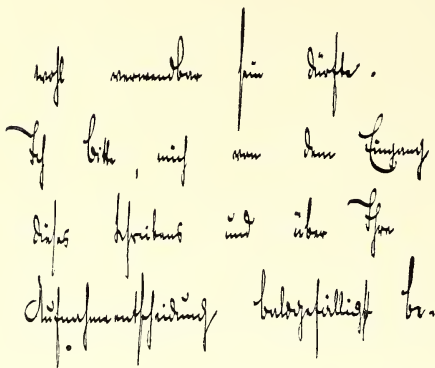 wohl verwendbar sein dürfte.
Ich bitte, mich von dem Eingang
dieses Schreibens und über Ihre
Aufnahmeentscheidung baldgefälligst be-